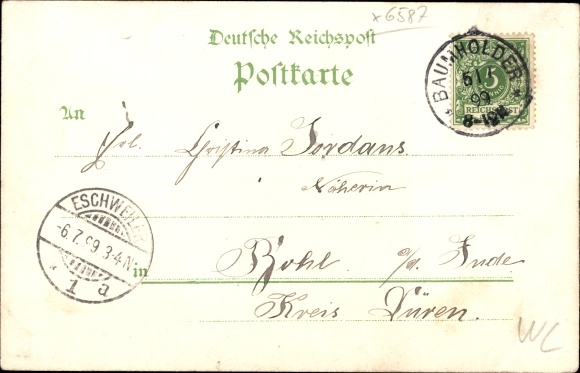 x6587
Deutsche Reichspost
Postkarte
BAUMHOLDER
6/7
99
8-12N
5
PFENNIG
REICHSPOST
An
Frl. Christina Jordans.
Näherin
ESCHWEILER
-6.7.99 3-4N
1 a
in Röhl. a/d. Inde
Kreis Düren.
WL